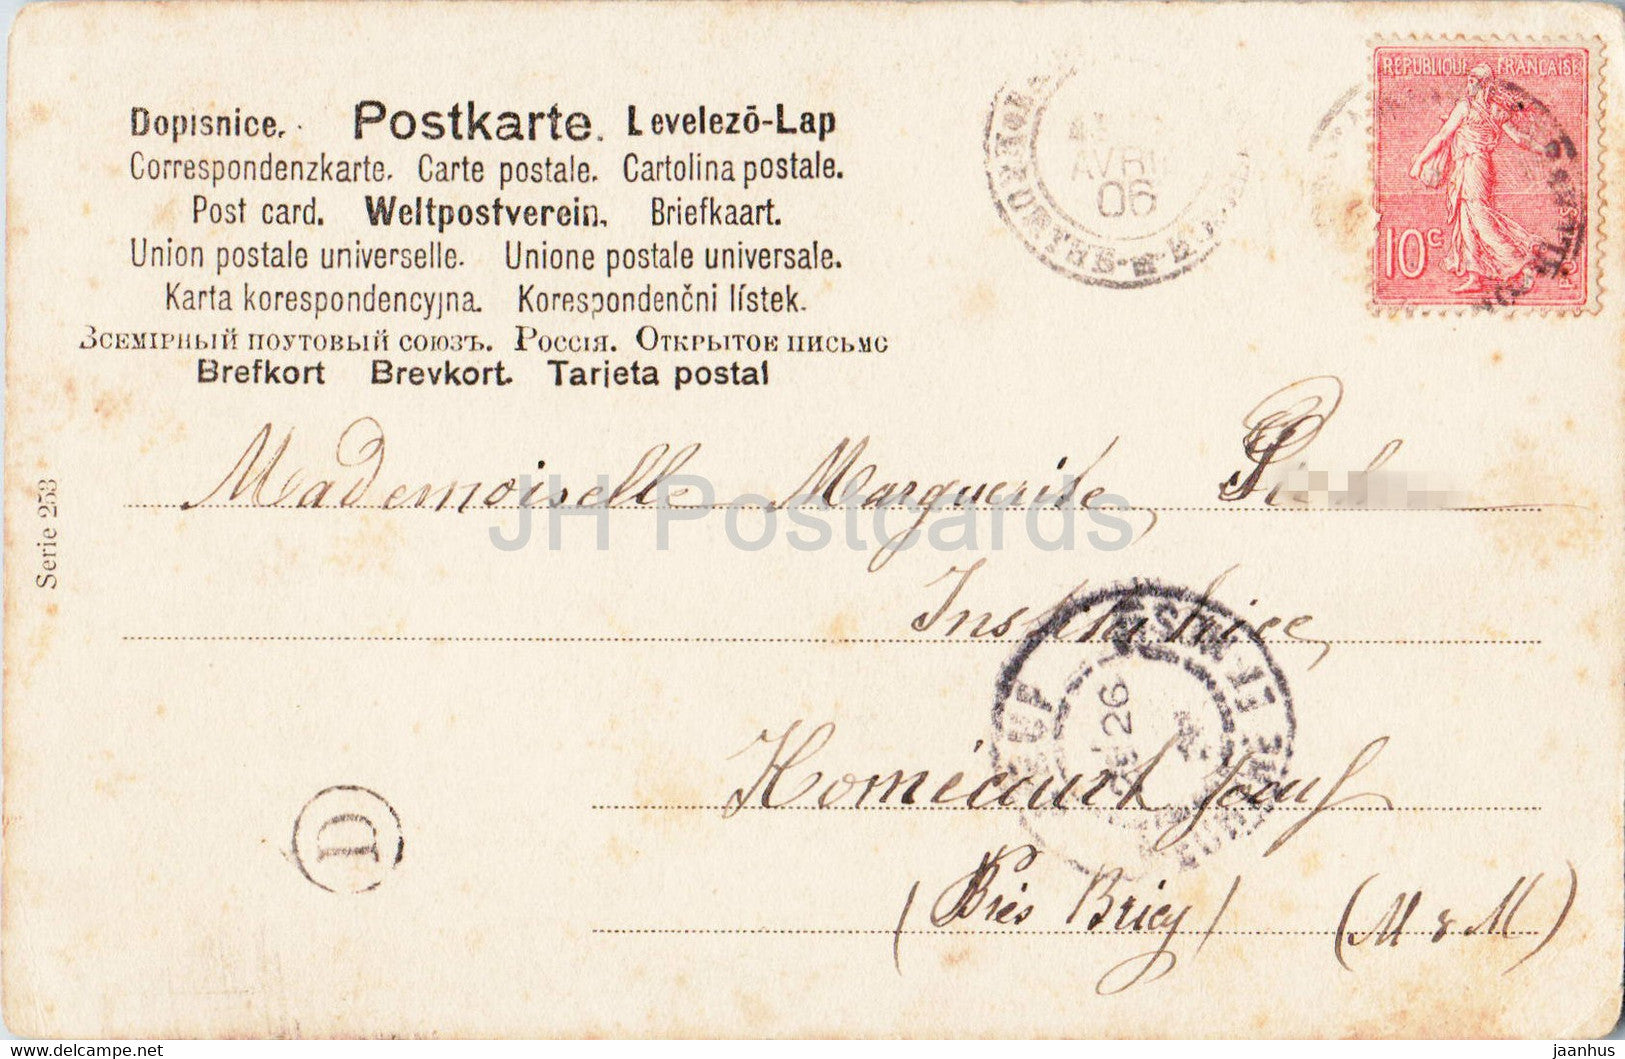 REPUBLIQUE FRANÇAISE
10c
AVRIL
06
Dopisnice. Postkarte. Levelező-Lap
Correspondenzkarte. Carte postale. Cartolina postale.
Post card. Weltpostverein. Briefkaart.
Union postale universelle. Unione postale universale.
Karta korespondencyjna. Korespondenční lístek.
Всемірный поутовый союзъ. Россія. Открытое письмо
Brefkort Brevkort. Tarjeta postal
Serie 253
Mademoiselle Marguerite
JH Postcards
Institutrice
MEURTHE-ET-MOSELLE
26
Homécourt Jœuf
D
(Près Briey) (M & M)
delcampe.net
jaanhus